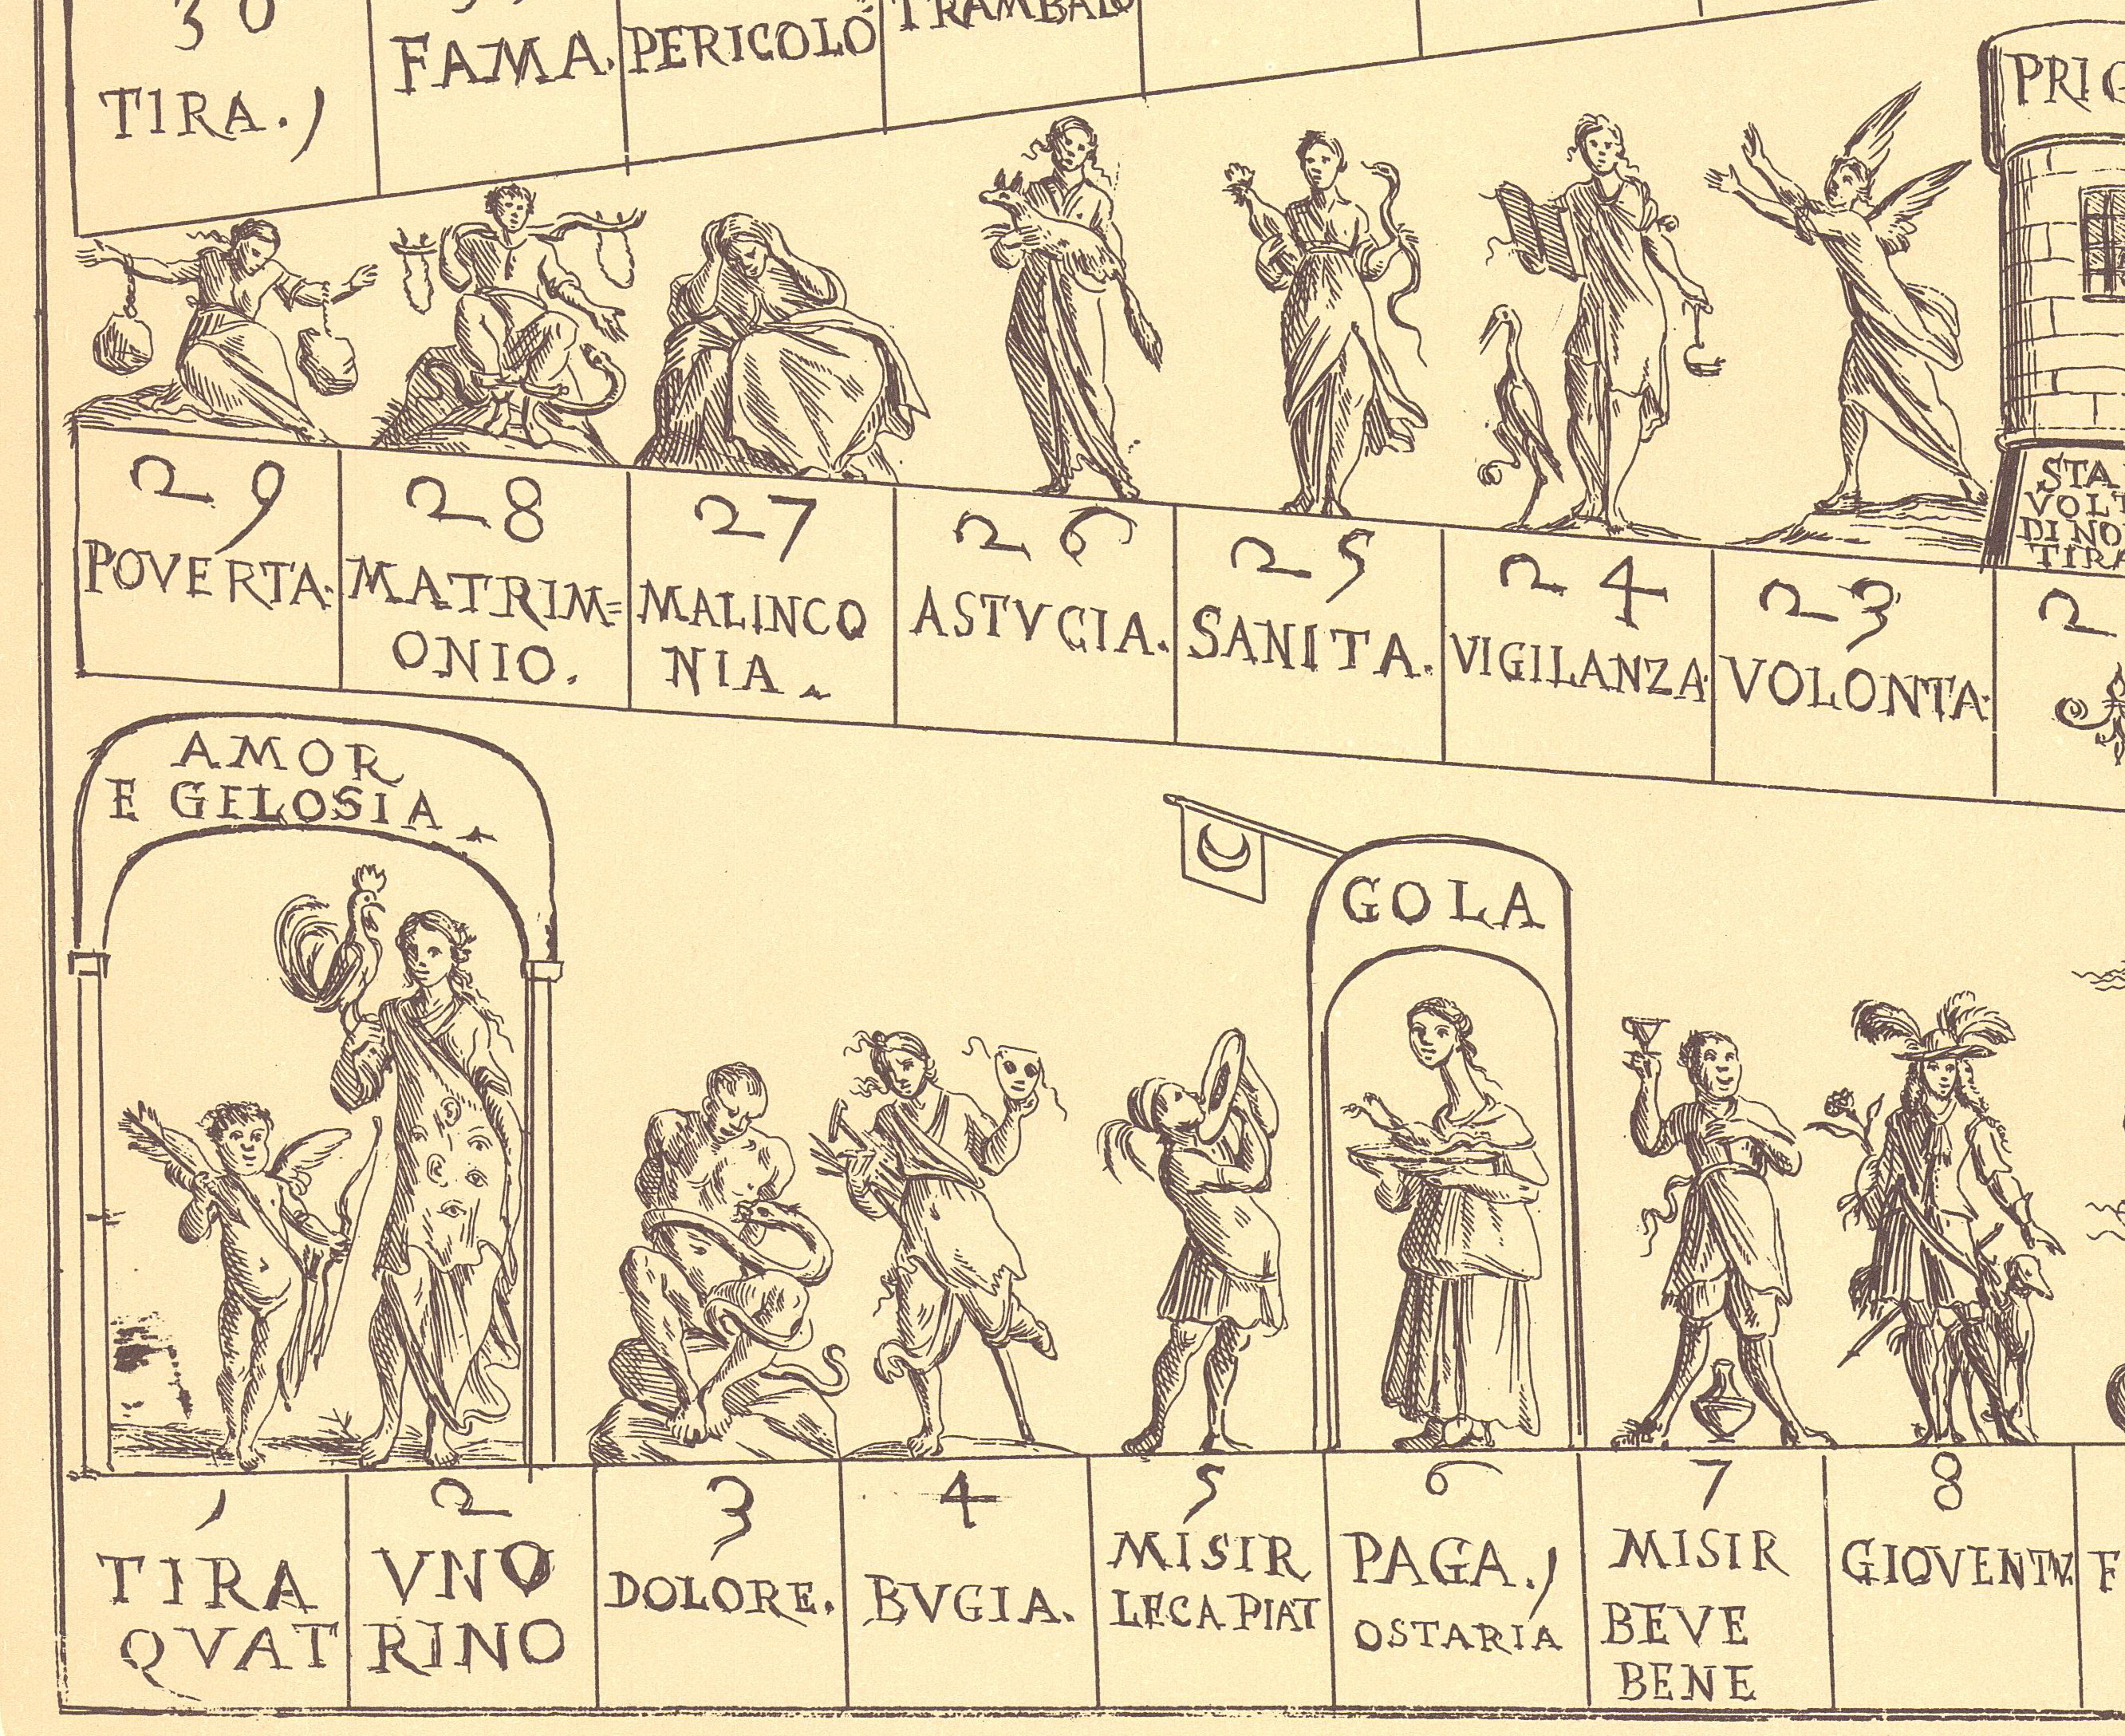 30
TIRA. 1
FAMA.
PERICOLO
TRAMBALO
PRIG
STA
VOLT
DI NO
TIRA
29
POVERTA.
28
MATRIM=
ONIO.
27
MALINCO
NIA.
26
ASTVCIA.
25
SANITA.
24
VIGILANZA.
23
VOLONTA.
2
AMOR
E GELOSIA.
GOLA
1
TIRA
QVAT
2
VNO
RINO
3
DOLORE.
4
BVGIA.
5
MISIR
LECA PIAT
6
PAGA. 1
OSTARIA
7
MISIR
BEVE
BENE
8
GIOVENTV.
F